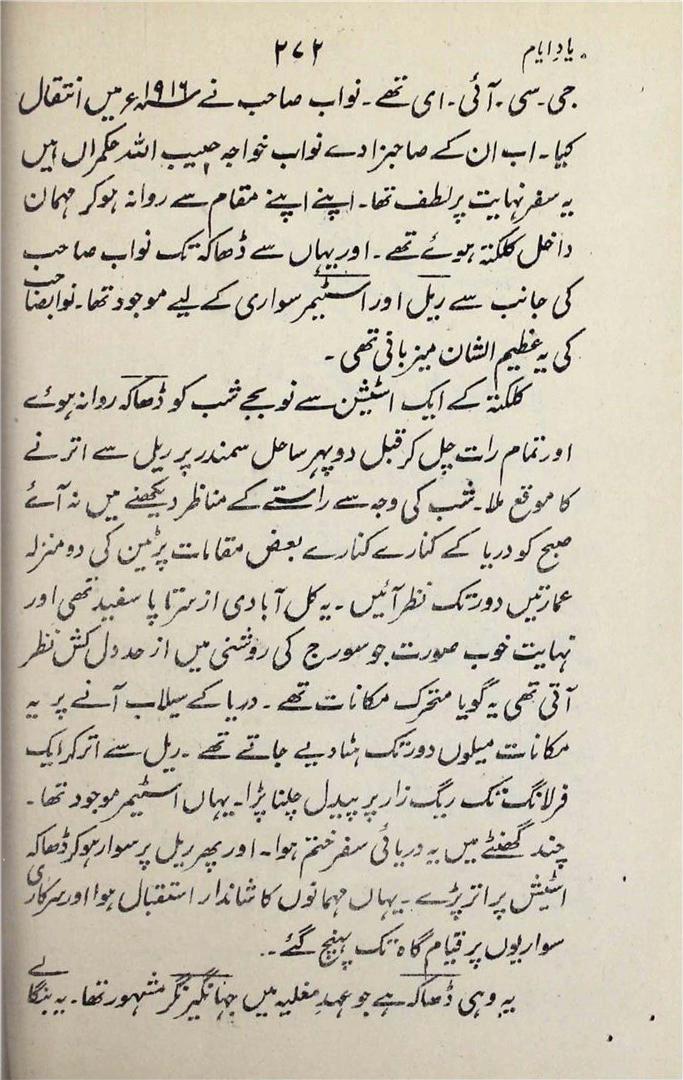 یادِ ایام
۲۷۲
جی۔سی۔آئی۔ای تھے۔ نواب صاحب نے ۱۹۱۶ء میں انتقال
کیا۔ اب ان کے صاحبزادے نواب خواجہ حبیب اللہ حکمراں ہیں
یہ سفر نہایت پرلطف تھا۔ اپنے اپنے مقام سے روانہ ہوکر مہمان
داخل کلکتہ ہوئے تھے۔ اور یہاں سے ڈھاکہ تک نواب صاحب
کی جانب سے ریل اور اسٹیمر سواری کے لیے موجود تھا۔ نوابصاحب
کی یہ عظیم الشان میزبانی تھی۔
کلکتہ کے ایک اسٹیشن سے نو بجے شب کو ڈھاکہ روانہ ہوئے
اور تمام رات چل کر قبل دوپہر ساحل سمندر پر ریل سے اترنے
کا موقع ملا۔ شب کی وجہ سے راستے کے مناظر دیکھنے میں نہ آئے
صبح کو دریا کے کنارے کنارے بعض مقامات پر ٹین کی دو منزلہ
عمارتیں دور تک نظر آئیں۔ یہ کل آبادی از سرتا پا سفید تھی اور
نہایت خوب صورت جو سورج کی روشنی میں از حد دل کش نظر
آتی تھی یہ گویا متحرک مکانات تھے۔ دریا کے سیلاب آنے پر یہ
مکانات میلوں دور تک ہٹا دیے جاتے تھے۔ ریل سے اتر کر ایک
فرلانگ تک ریگ زار پر پیدل چلنا پڑا۔ یہاں اسٹیمر موجود تھا۔
چند گھنٹے میں یہ دریائی سفر ختم ہوا۔ اور پھر ریل پر سوار ہوکر ڈھاکہ
اسٹیشن پر اتر پڑے۔ یہاں مہمانوں کا شاندار استقبال ہوا اور سرکاری
سواریوں پر قیام گاہ تک پہنچ گئے۔
یہ وہی ڈھاکہ ہے جو عہدِ مغلیہ میں جہانگیر نگر مشہور تھا۔ یہ بنگالے